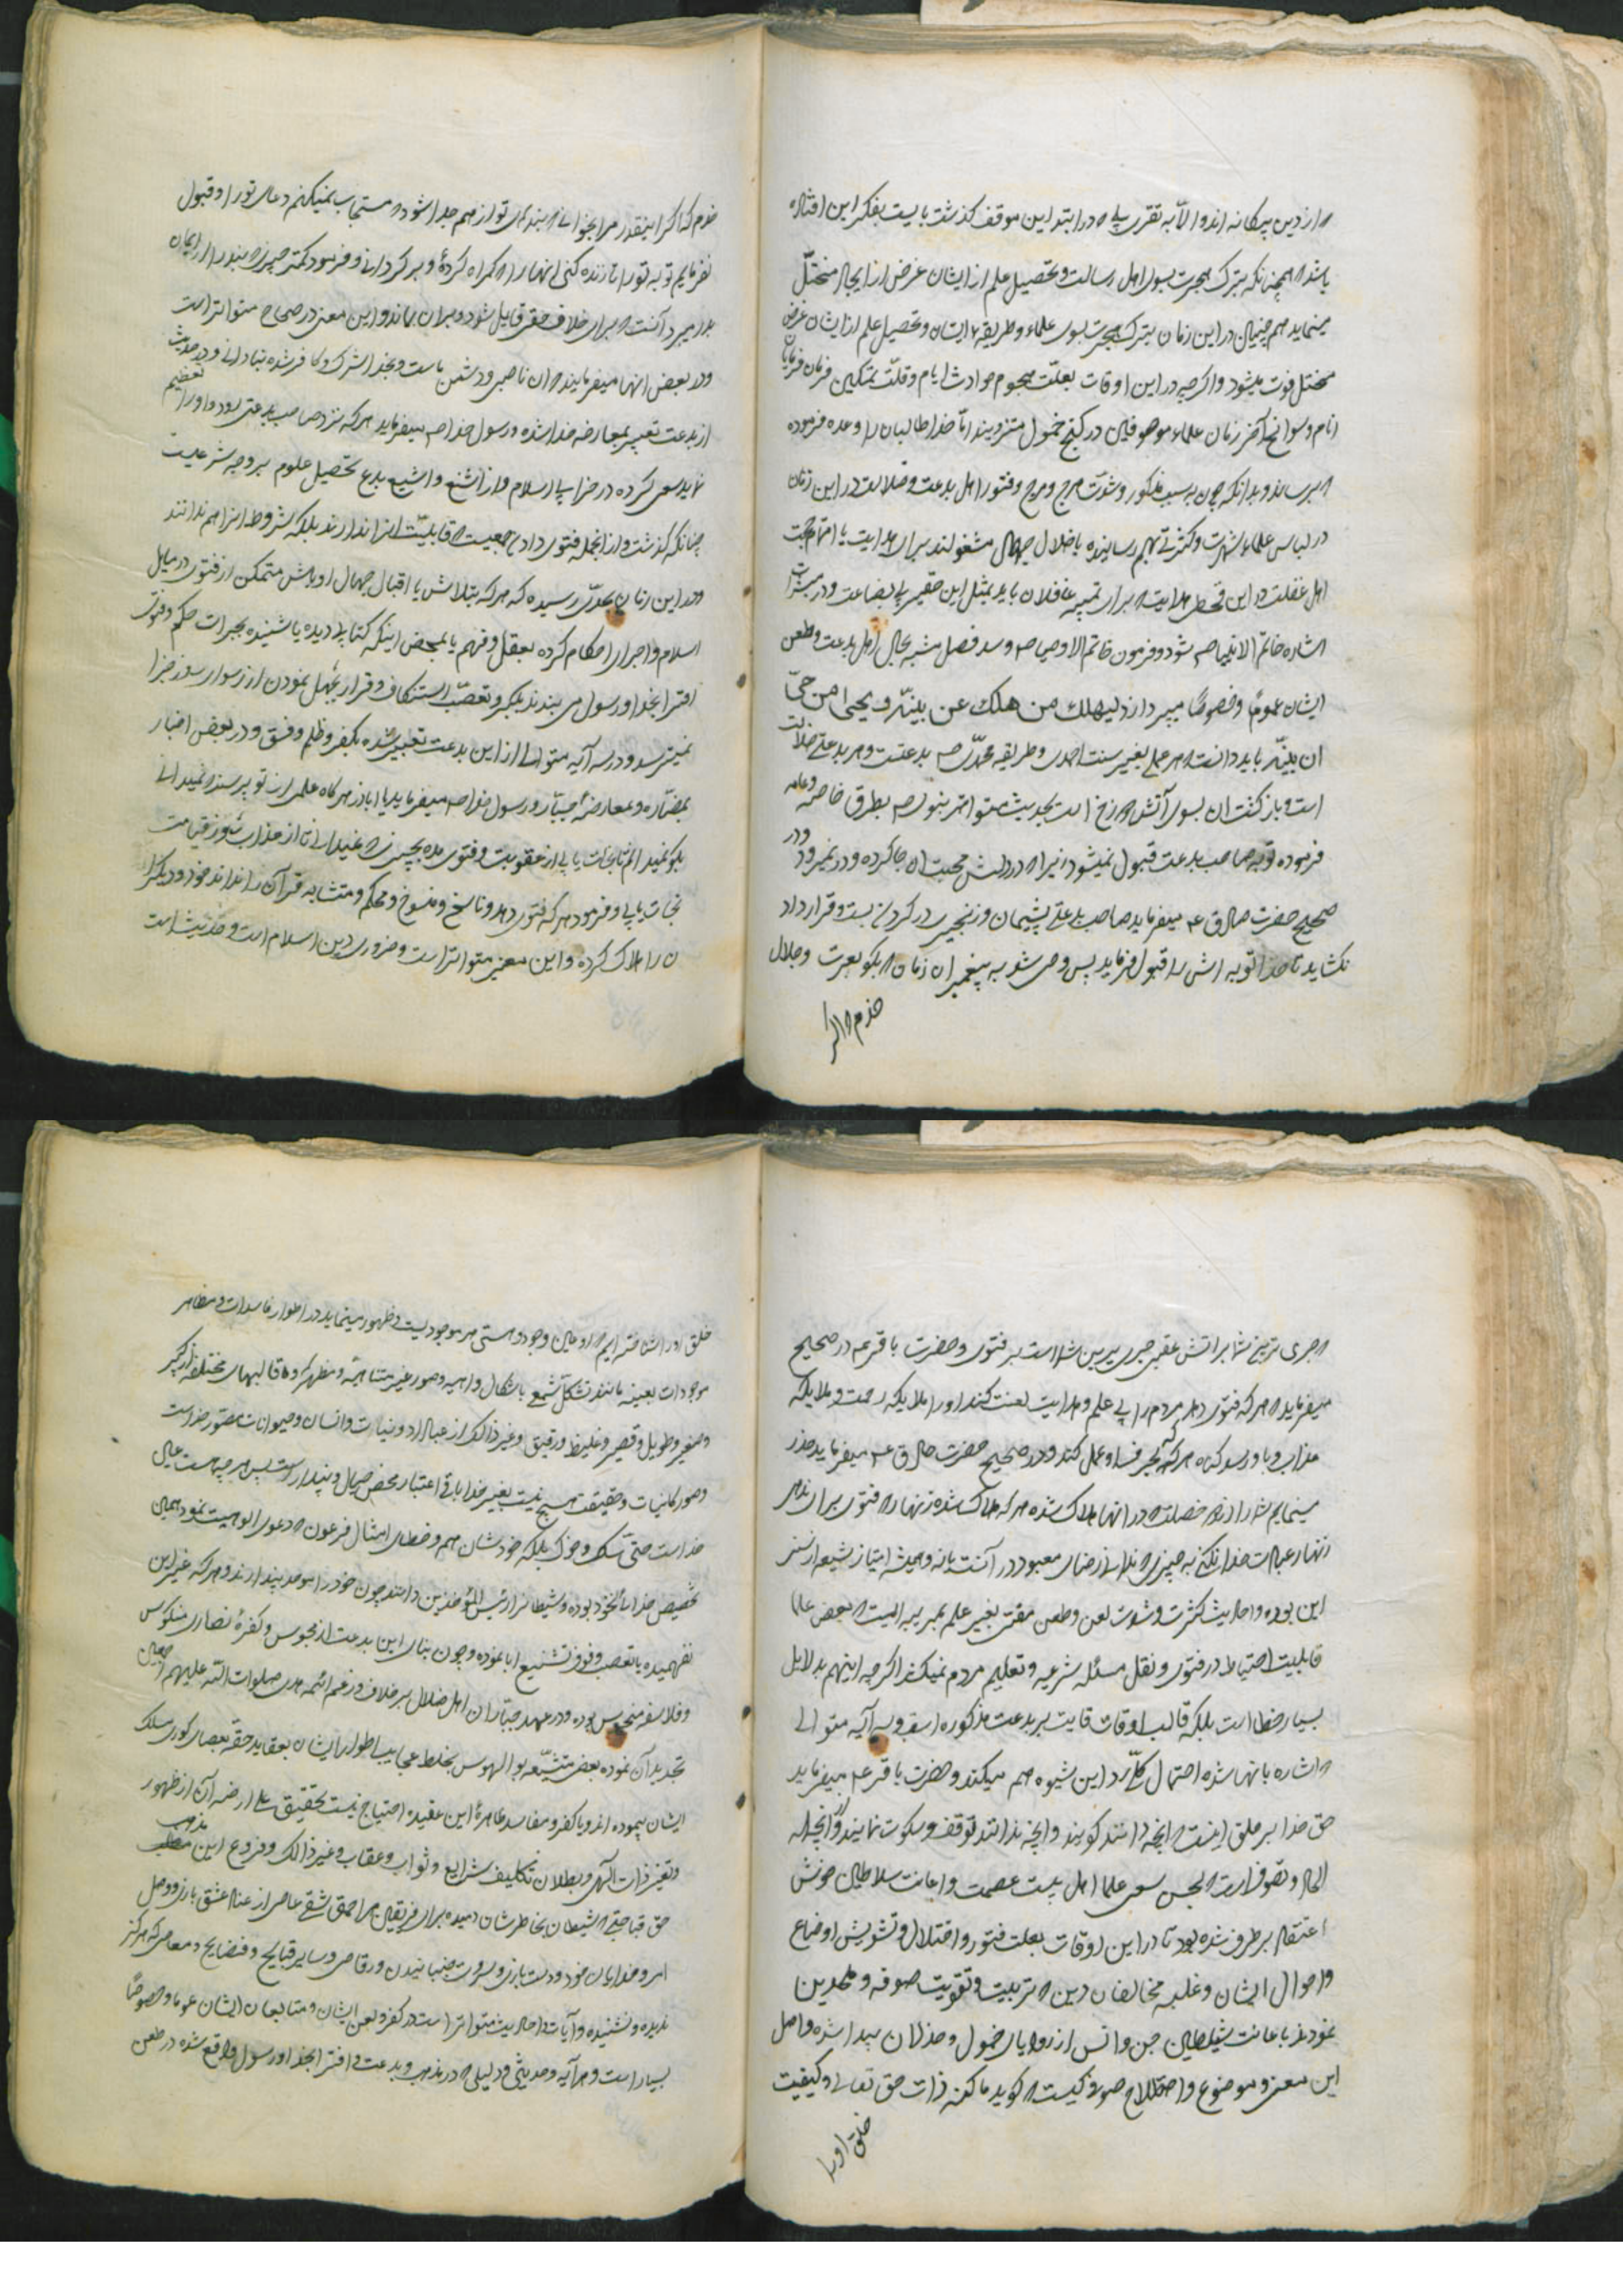 از دین بیگانه اند و الا به تقریبی که در ابتدا این موقف گذشت بایست بفکر این افتاد
باشد همچنانکه بترک هجرت بسوی اهل رسالت و تحصیل علم از ایشان غرض از ایجاد مختلّ
مینماید همچنان در این زمان بترک هجرت بسوی علماء و طریقه ایشان و تحصیل علم از ایشان غرض
مختل و فوت میشود و اگرچه در این اوقات بعلّت هجوم حوادث ایام و قلّت تمکین فرمان فرمایان
انام و سوانح آخر زمان علماء موصوفین در کنج خمول منزویند امّا خدا طالبان را وعده فرموده
که برساند و بدانکه چون به سبب مذکور و شدّت هرج و مرج و فتور اهل بدعت و ضلالت در این زمان
در لباس علماء شهرت و کثرتی بهم رسانیده باضلال جهّال مشغولند برای هدایت یا اتمام حجت
اهل غفلت در این قحطی هدایت برای تنبیه غافلان باید بمثل این حقیر بی بضاعت
اشاره خاتم الانبیا ص شود و فرمون خاتم الاوصیا ص و سه فصل مشبه بحال اهل بدعت و طعن
ایشان عموماً و خصوصاً میپردازد لیهلك من هلك عن بینّة و یحیی من حیّ
عن بینّة باید دانست که هر عملی بغیر سنت احمدی و طریقه محمدّی ص بدعتست و هر بدعتی ضلالت
است و بازگشت آن بسوی آتش دوزخ است بحدیث متواتر نبوی ص بطرق خاصه و عامه
فرموده توبه صاحب بدعت قبول نمیشود زیرا که در دلش محبت آن جا کرده و در نمیرود و در
صحیح حضرت صادق ع میفرماید صاحب بدعتی پشیمان و زنجیری در گردن بست و قرار داد
نگشاید تا خدا توبه اش را قبول فرماید پس وحی شد به پیغمبر آن زمان که بگو بعزت و جلال
خودم که اگر
خودم که اگر اینقدر مرا بخوانی که بندهای تو از هم جدا شود که مستجاب نمیکنم دعای تو را و قبول
نفرمایم توبه تو را تا زنده کنی آنها را که گمراه کرده و برگردانی و فرمود کمتر چیزی که بنده را از ایمان
بدر میبرد آنست که برای خلاف حقی قایل شود و بر آن بماند و این معنی در صحاح متواتر است
و در بعض آنها میفرمایند که آن ناصبی و دشمن ماست و بخدا شرک و کافر شده بنادانی و در حدیث
از بدعت تعبیر بمعارضه خدا شده و رسول خدا ص میفرماید هر که نزد صاحب بدعتی رود و او را تعظیم
نماید سعی کرده در خرابی اسلام و از اشنع و اشیع بدع تحصیل علوم بر وجه شرعیست
چنانکه گذشت و از آنجمله فتوی دادن جمعیست که قابلیّت آنرا ندارند بلکه شروط آنرا هم ندانند
و در این زمان بحدّی رسیده که هر که بتلاش یا اقبال جهال اوباش متمکن از فتوی در مسایل
اسلام و اجرای احکام کرده بعقل و فهم یا بمحض اینکه کتابی دیده یا شنیده بجرات حکم و فتوی
افترا بخدا و رسول می بندند بتکبر و تعصّب استنکاف و قرار بجهل نمودن از رسوای روز جزا
نمیترسد و در سه آیه متوالی از این بدعت تعبیر شده بکفر و ظلم و فسق و در بعض اخبار
بمضاره و معارضهٔ جبّار و رسول خدا ص میفرماید یا اباذر هرگاه علمی از تو پرسند که نمیدانی
بگو نمیدانم تا نجات یابی از عقوبت و فتوی مده بچیزی که نمیدانی تا از عذاب روز قیامت
نجات یابی و فرمود هر که فتوی دهد و ناسخ و منسوخ و محکم و متشابه قرآن را نداند خود و دیگرا
ن را هلاک کرده و این معنی متواتر است و ضروری دین اسلام است و حدیث است
که جری ترین شما بر آتش عقبی جری ترین شما است بر فتوی و حضرت باقر ع در صحیح
میفرماید که هر که فتوی دهد مردم را بی علم و هدایت لعنت کند او را ملایکه رحمت و ملایکه
عذاب و باو رسد گناه هر که بفتوای او عمل کند و در صحیح حضرت صادق ع میفرماید حذر
مینمایم شما را از دو خصلت که در آنها هلاک شده هر که هلاک شده زنهار که فتوی برای ندهی
زنهار عبادت خدا نکنی به چیزی که ندانی رضای معبود در آنست یا نه و همیشه امتیاز شیعه از سنی
این بوده و احادیث کثرت و شدت لعن و طعن مفتی بغیر علم بمرتبه ایست که بعض علما
قابلیت احتیاط در فتوی و نقل مسئله شرعیه و تعلیم مردم نمیکند اگرچه اینهم بدلایل
بسیار خطا است بلکه غالب اوقات بر بدعت مذکوره و سه آیه متوالی
که اشاره بآنها شده احتمال کلّی رد این شیوه هم میکند و حضرت باقر ع میفرماید
حق خدا بر خلق اینست که آنچه دانند گویند و آنچه ندانند توقف و سکوت نمایند و از آنجمله
الحاد و تصوف است که بحسن سعی علما اهل بیت عصمت و اعانت سلاطین خوش
اعتقاد بر طرف شده بود تا در این اوقات بعلت فتور و اختلال و تشویش اوضاع
و احوال ایشان و غلبه مخالفان دین که تربیت و تقویت صوفه و ملحدین
نمودند باعانت شیاطین جن و انس از زوایای خمول و خذلان پیدا شده و اصل
این معنی و موضوع و اصطلاح صوفی کیست که گوید ما کنه ذات حق تعالی و کیفیت
خلق او را
خلق او را شناخته ایم که او عین وجود و هستی هر موجودیست و ظهور مینماید در اطوار و مظاهر
موجودات بعینه مانند تشکل شمع باشکال واهیه و صور غیر متناهیه و مظهر کرده قالبهای مختلفه از کبیر
و صغیر و طویل و قصیر و غلیظ و رقیق و غیر ذالک از جماد و نبات و انسان و حیوانات متصور خداست
و صور کاینات و حقیقت هیچ نیست بغیر خدا باقی اعتبار محض خیال و پندار است پس هر چه هست عین
خداست حتی سگ و خوک بلکه خودشان هم و خطای امثال فرعون که دعوی الوهیت نمود همین
تخصیص خدا بخود بوده و شیطانرا رئیس الموحدین دانند چون خود را موحد پندارند و هر که غیر این
نفهمیده با تعصب و فوق تشنیع ابا نموده و چون بنای این بدعت از مجوس و کفرهٔ نصاری منکوس
و فلاسفه منحوس بوده و در عهد جبّاران اهل ضلال بر خلاف و رغم ائمه هدی صلوات اللّه علیهم اجمعین
تجدید آن نموده بعض متشیّعه بوالهوس بخلط عجایب اطوار ایشان بعقاید حقّه بعصای کوری مسلک
ایشان پیموده اند و با کفر و مفاسد ظاهرهٔ این عقیده احتیاج نیست بتحقیق
و تغیر ذات الهی و بطلان تکلیف شرایع و ثواب و عقاب و غیر ذالک و فروع این مذهب
حق قباحتی که شیطان بخاطرشان دمیده برای فریفتن هر احمق شقی عاصی از غنا و عشق بازی و وصل
امرد خدایان خود و دست بازی و سر و جنبانیدن و رقاصی و سایر قبایح و فضایح و معاصی که هرگز
ندیده و نشنیده و آیات و احادیث متواتر است در کفر و لعن ایشان و متابعان ایشان عموما و خصوصاً
بسیار است و هر آیه و حدیثی و دلیلی که در مذهب و بدعت و افترا بخدا و رسول واقع شده در طعن